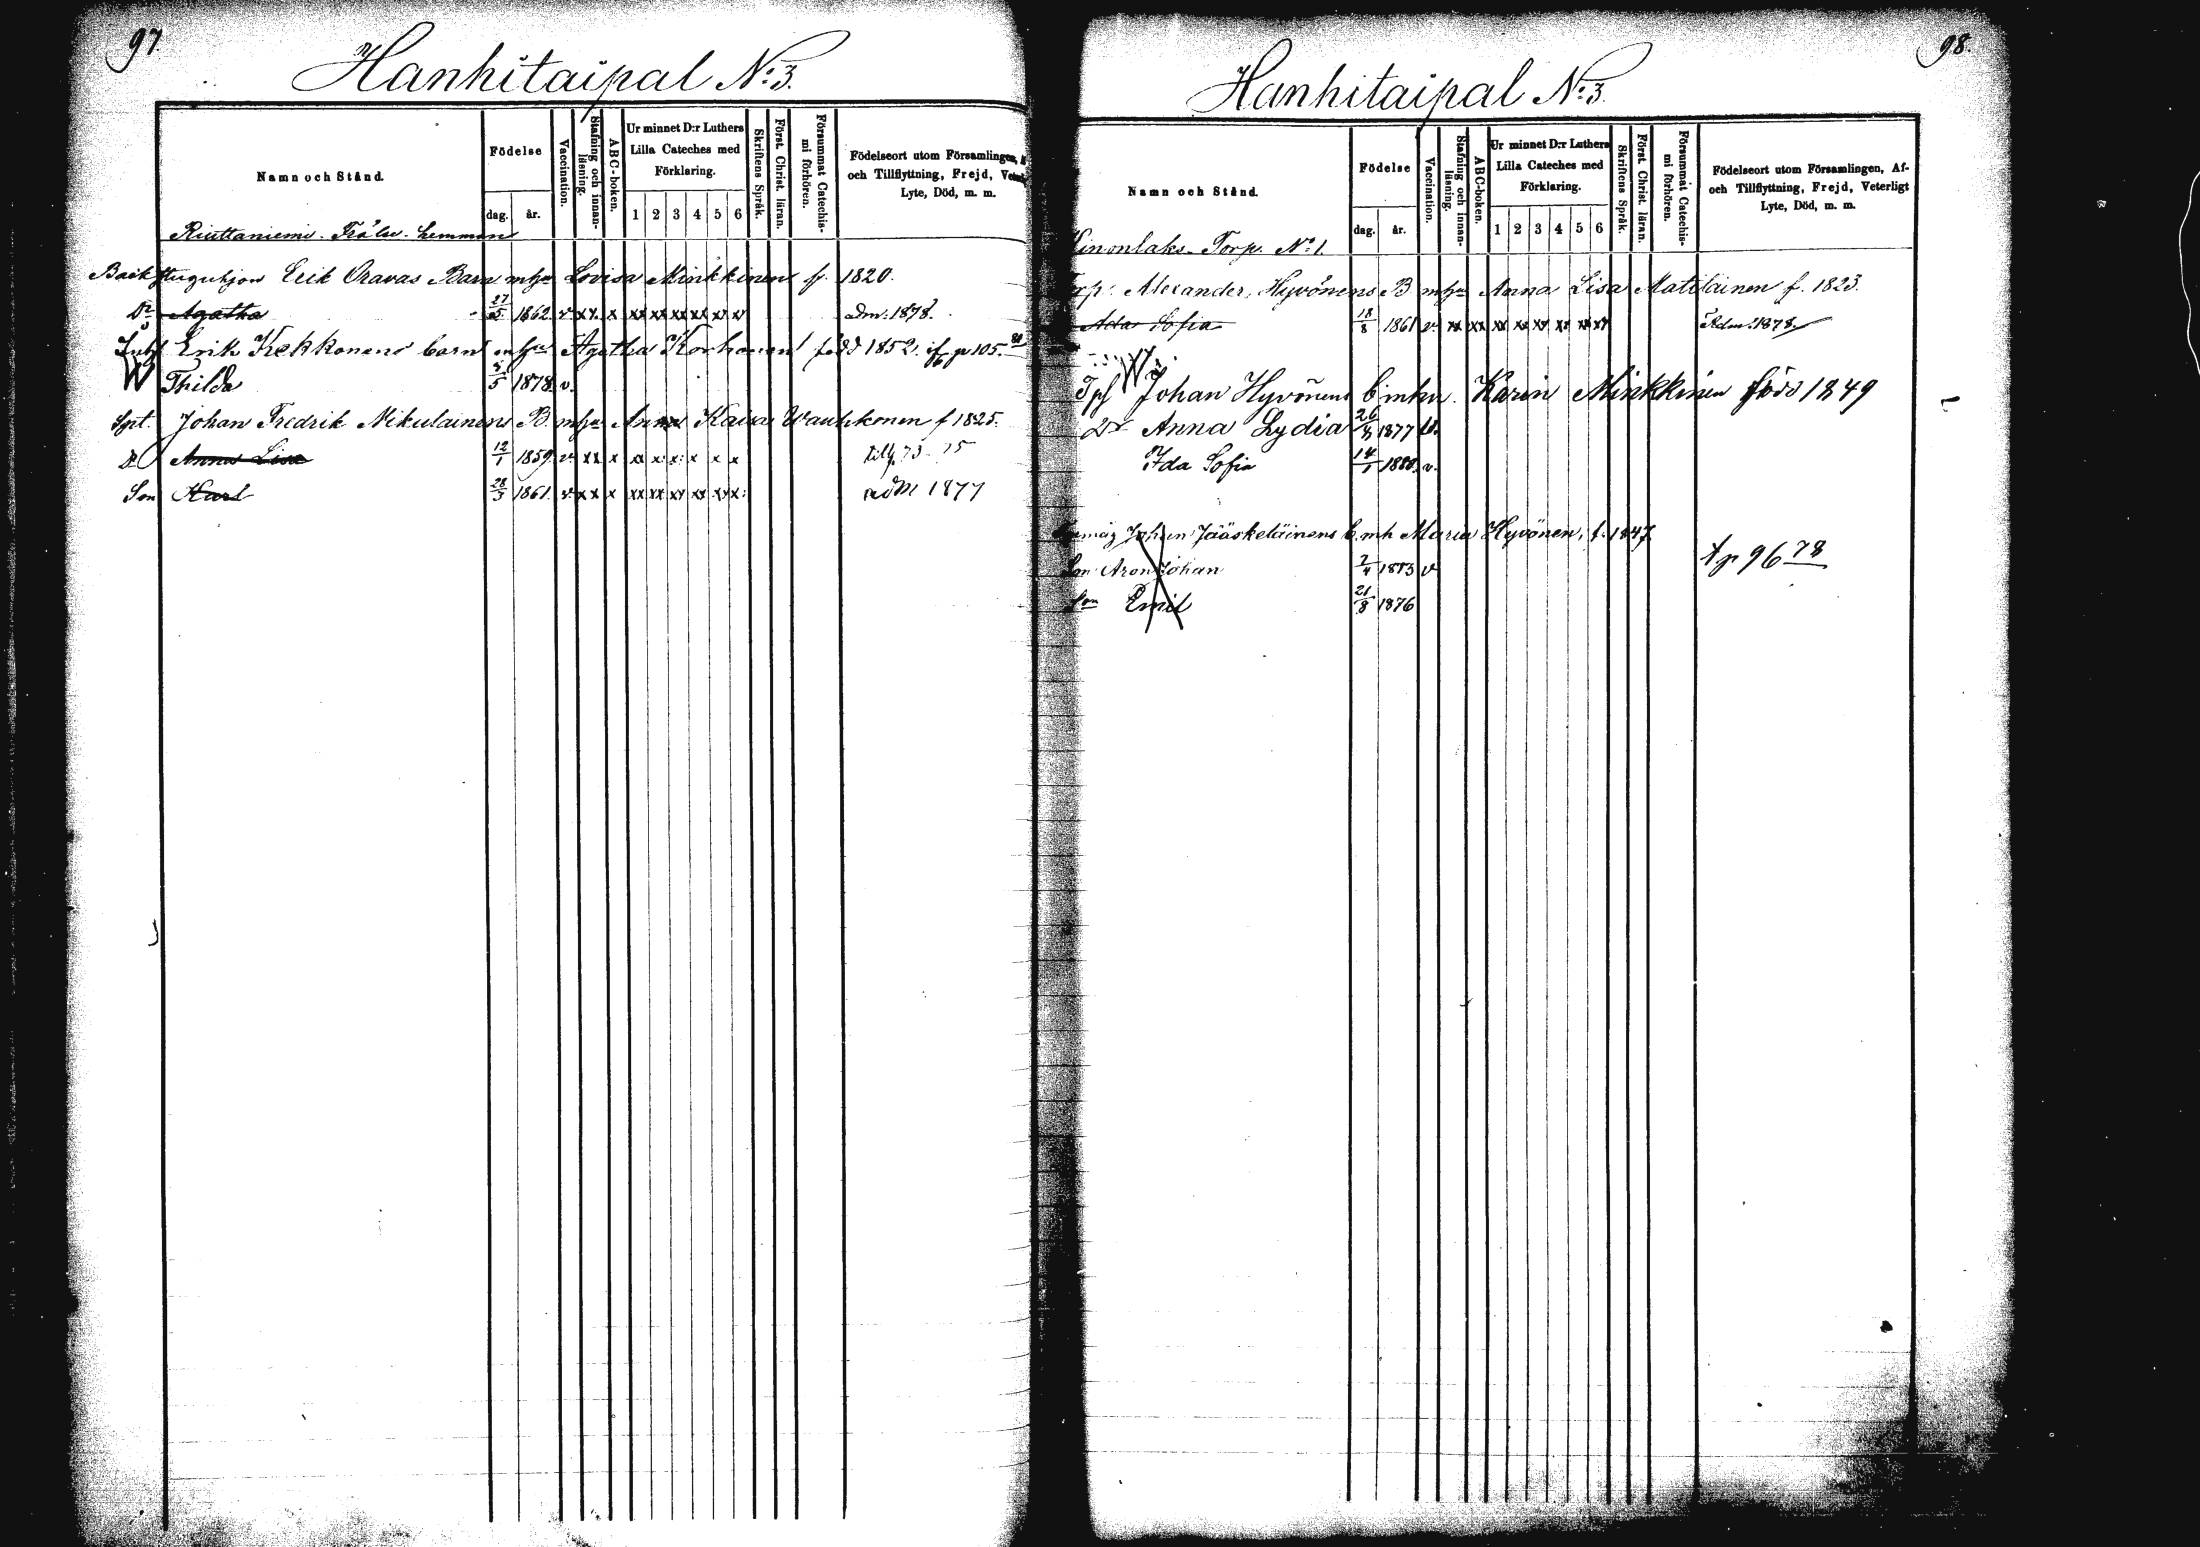 97.
Hanhitaipal No 3.
Namn och Stånd.
Födelse
dag. år.
Vaccination.
Stafning och innan-läsning.
ABC-boken.
Ur minnet D:r Luthers
Lilla Cateches med
Förklaring.
1 2 3 4 5 6
Skriftens Språk.
Först. Christ. läran.
Försummat Catechis-
mi förhören.
Födelseort utom Församlingen,
och Tillflyttning, Frejd,
Lyte, Död, m. m.
Riuttaniemi
Erik Oravas Barn mhu Lovisa Minkkinen f. 1820.
Dr Agatha 27/5 1862 v xx x xx xx xx xx xx adm: 1878.
Inh Erik Kekkonens barn mhu Agatha Korhonen född 1852. p 105.
Thilda 5 1878 v.
Johan Fredrik Nikulainens B. mhu Anna Kaisa f 1825.
Dr Anna Lisa 12/1 1859 v xx x xx x x x x x 73-75
Son Karl 28/3 1861 v xx x xx xx xx xx xx x adm 1877
98.
Hanhitaipal No 3.
Namn och Stånd.
Födelse
dag. år.
Vaccination.
Stafning och innan-läsning.
ABC-boken.
Ur minnet D:r Luthers
Lilla Cateches med
Förklaring.
1 2 3 4 5 6
Skriftens Språk.
Först. Christ. läran.
Försummat Catechis-
mi förhören.
Födelseort utom Församlingen, Af-
och Tillflyttning, Frejd, Veterligt
Lyte, Död, m. m.
Torp. No 1.
Alexander Hyvönens B mhu Anna Lisa Matilainen f. 1823.
Ada Sofia 18/8 1861 v. xx xx xx xx xx xx xx xx Adm: 1878.
Johan Hyvönens b mhu Karin Minkkinen född 1849
Dr Anna Lydia 1877 v.
Ida Sofia 14/1 1880. v.
Johan Jääskeläinens b. mh Maria Hyvönen, f. 1847.
Son Aron Johan 2/4 1873 v
tp 96 78
Son Emil 21/8 1876